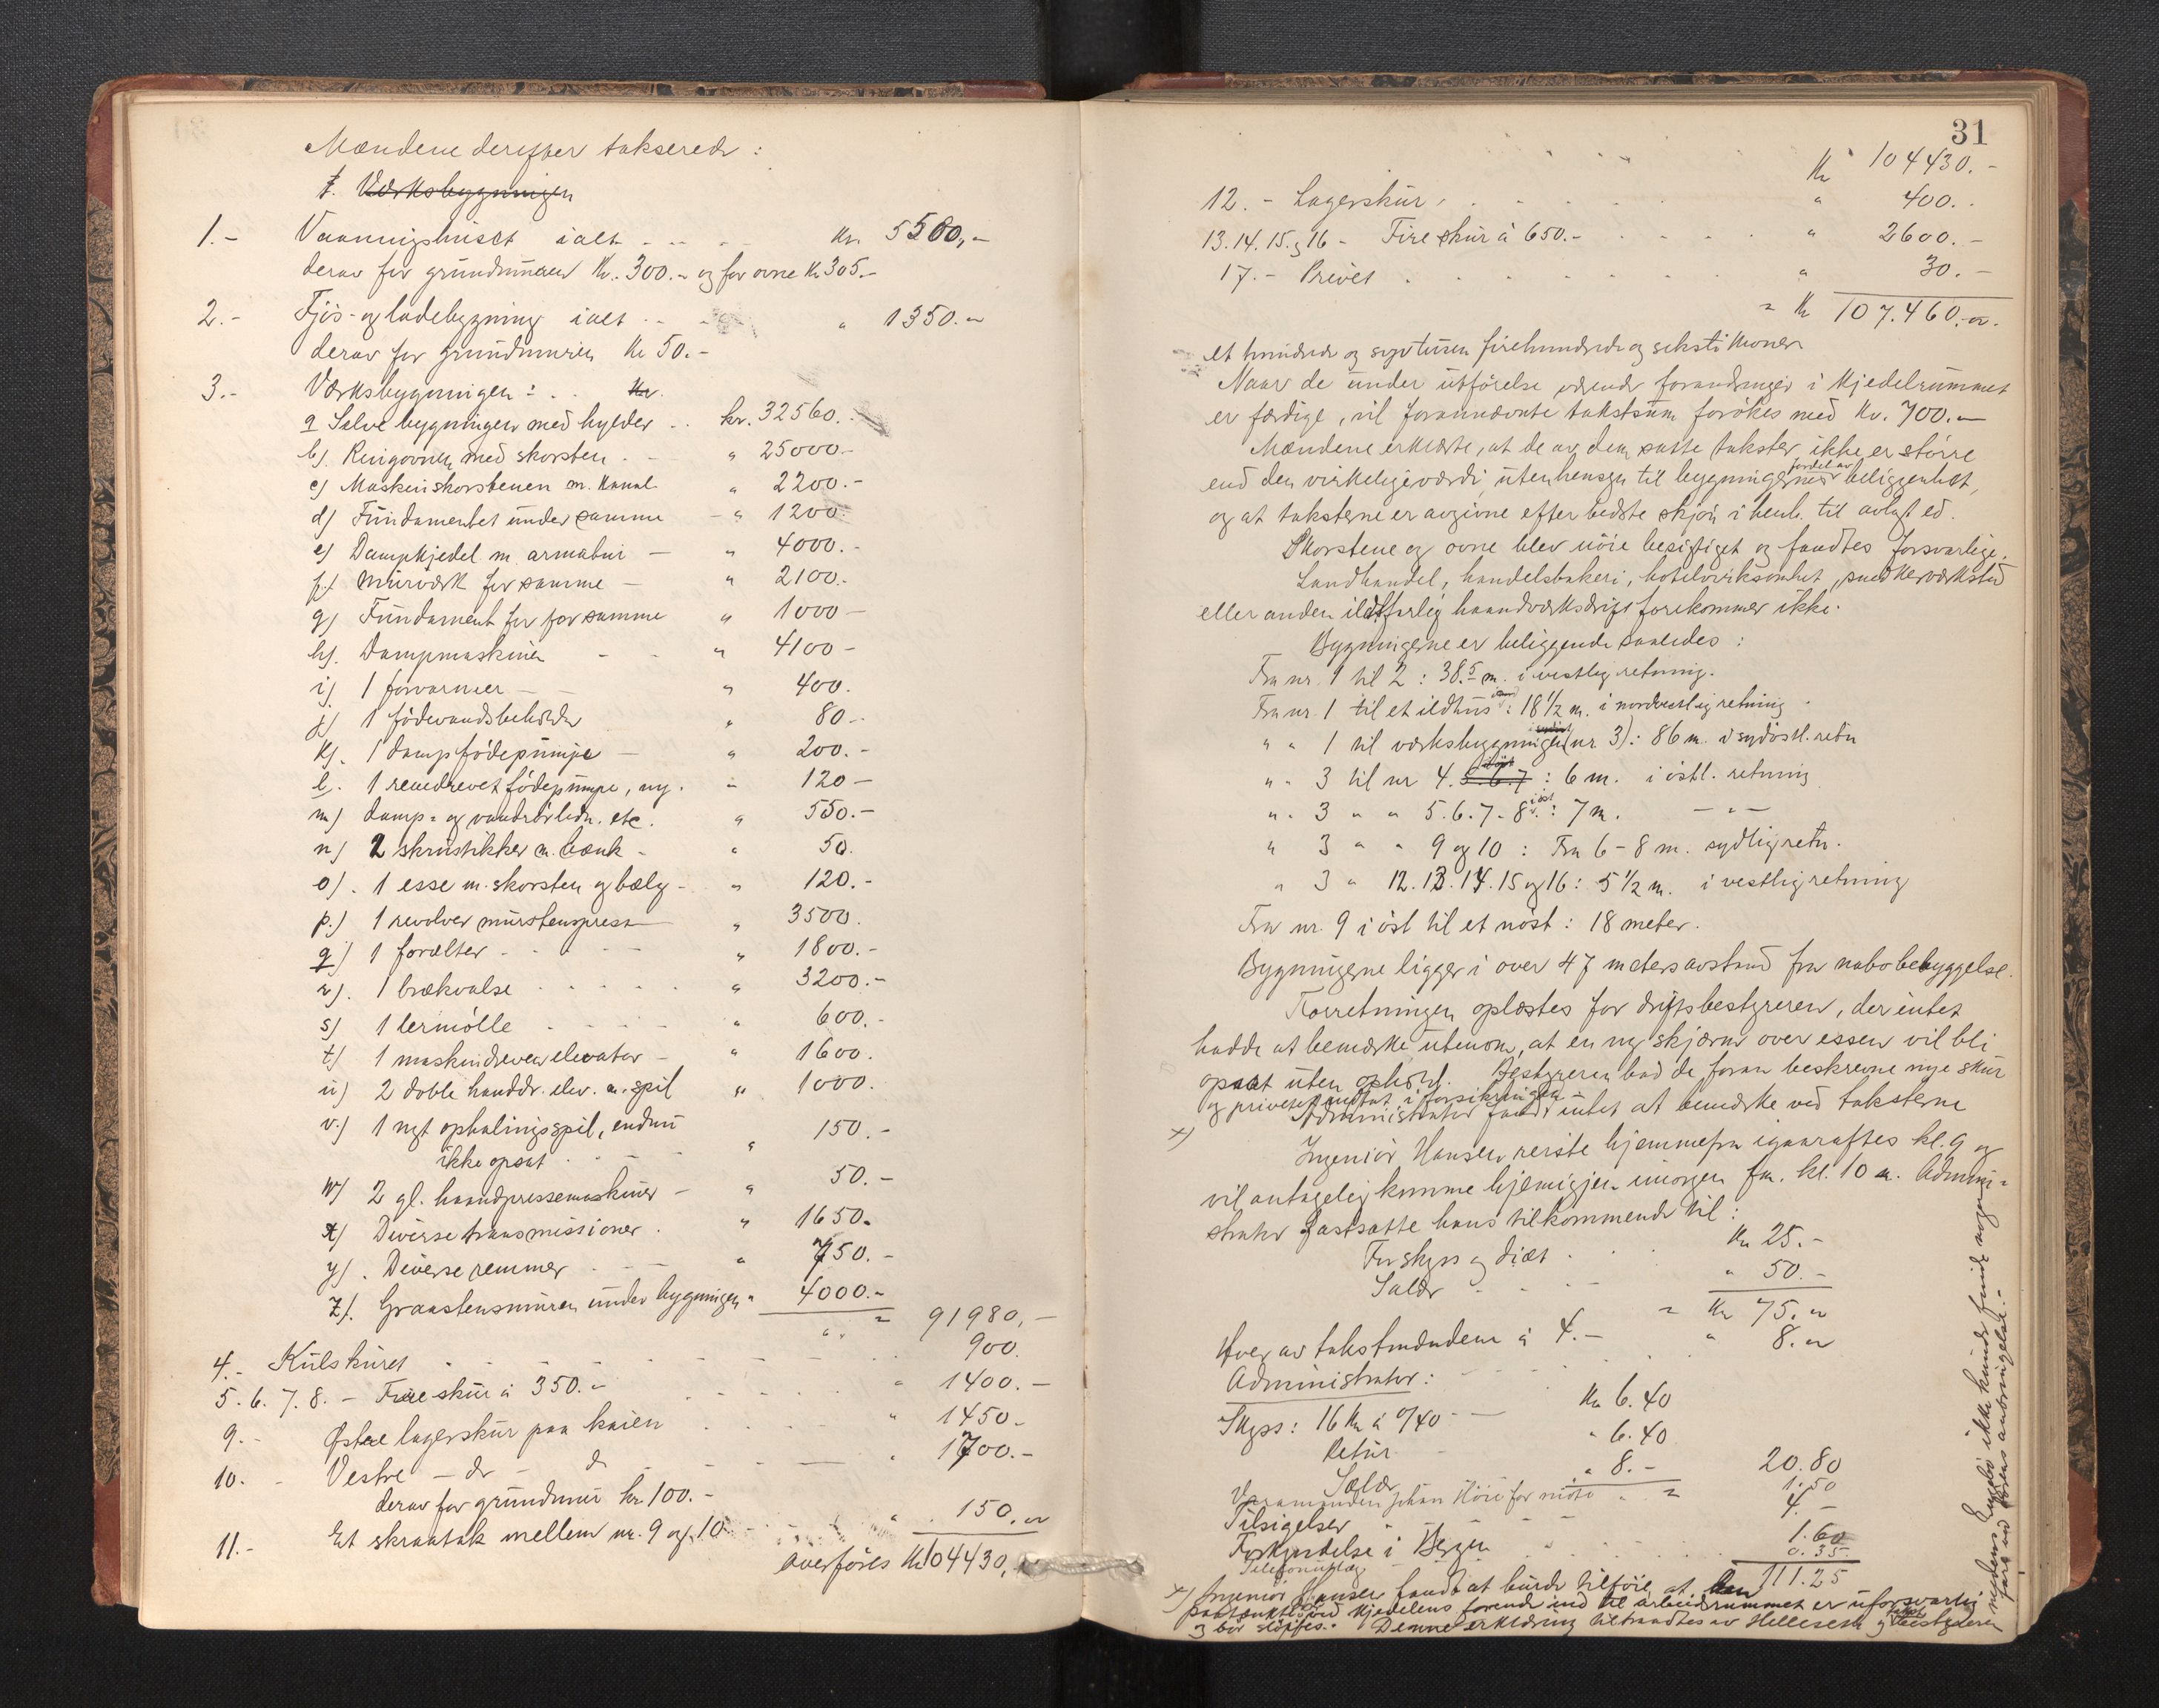 Mændene derefter takserede :
1. Værksbygningen
1.- Vaaningshuset ialt - - - - Kr. 5500,-
derav for grundmuren Kr. 300.- og for ovne Kr 305.-
2.- Fjös- og ladebygning ialt - - " 1350.-
derav for grundmuren Kr 50.-
3.- Værksbygningen : . . Kr.
a Selve bygningen med hylder . . kr. 32560.-
b). Ringovnen med skorsten . - " 25000.-
c) Maskinskorstenen m. Kanal " 2200.-
d) Fundamentet under samme - " 1200
e) Dampkjedel m. armatur - " 4000.-
f.) Murværk for samme - " 2100.-
g) Fundament for samme " 1000 -
h). Dampmaskinen - - " 4100 -
i) 1 forvarmer - - " 400.
j) 1 födevandsbeholder " 80.-
k). 1 dampfödepumpe - " 200.-
l. 1 remdrevet födepumpe, ny. - 120 -
m) damp- og vandrörledn. etc. " 550.-
n) 2 skrustikker m. bænk - " 50.
o). 1 esse m. skorsten og bælg - " 120.-
p.) 1 revolver murstenspresse " 3500.
q) 1 forælter - - - " 1800.-
r). 1 brækvalse . . . . " 3200.-
s) 1 lermölle . - - - " 600.-
t) 1 maskindreven elevator - " 1600.
u) 2 doble handdr. elev. m. spil " 1000.
v.) 1 nyt ophalingsspil, endnu
ikke opsat . - - " 150.-
w) 2 gl. haandpressemaskiner - " 50.-
x) Diverse transmissioner . " 1650.
y). Diverse remmer . - - " 750.-
z). Graastensmuren under bygningen " 4000.-
= 91980,-
4.- Kulskuret - - - - - - " 900.
5. 6. 7. 8. - Fire skur à 350.- . . . " 1400.-
9.- Østre lagerskur paa kaien . . . " 1450.-
10. - Vestre - do - do - - - " 1700.-
derav for grundmur kr. 100.-
11.- Et skraatak mellem nr. 9 og 10 - . . " 150.-
Overføres Kr 104430,-
31
Kr 104430.-
12. - Lagerskur . . . . . " 400.-
13. 14. 15. og 16 - Fire skur à 650.- . . . . " 2600.-
17. - Privet . . . . . . " 30.-
= Kr 107.460.-
et hundrede og syvtusen firehundrede og seksti Kroner
Naar de under utförelse værende forandringer i Kjedelrummet
er færdige, vil forannævnte takstsum forökes med Kr. 700.-
Mændene erklærte, at de av dem satte takster ikke er större
end den virkelige værdi, uten hensyn til bygningernes fordel av beliggenhet,
og at taksterne er avgivne efter bedste skjön i henh. til avlagt ed.
Skorstene og ovne blev nöie besigtiget og fandtes forsvarlige.
Landhandel, handelsbakeri, hotelvirksomhet, snedkerværksted
eller anden ildsfarlig haandværksdrift forekommer ikke.
Bygningerne er beliggende saaledes :
Fra nr. 1 til 2 : 38.5 m. i vestlig retning.
Fra nr. 1 til et ildhus : 18 1/2 m. i nordvestlig retning
" " 1 til værksbygningen (nr 3) : 86 m. i sydöstl. retn
" " 3 til nr 4. 5. 6. 7 : 6 m. i östl. retning
" " 3 " " 5. 6. 7. 8 i öst : 7 m. - " -
" 3 " " 9 og 10 : Fra 6 - 8 m. sydlig retn.
" 3 " 12. 13. 14. 15 og 16 : 5 1/2 m. i vestlig retning
Fra nr. 9 i öst til et nöst : 18 meter.
Bygningerne ligger i over 47 meters avstand fra nabobebyggelse.
Forretningen oplæstes for driftsbestyreren, der intet
hadde at bemærke utenom, at en ny skjærm over essen vil bli
opsat uten ophold. Bestyreren bad de foran beskrevne nye skur
og privetet indtat i forsikringen
Administrator fandt intet at bemærke ved taksterne
x)
Ingeniör Hansen reiste hjemmefra igaaraftes kl. 9 og
vil antagelig komme hjem igjen imorgen fm. kl. 10 a. Admini-
strator fastsatte hans tilkommende til :
For skyss og diæt . . . Kr 25.-
Salær - - - " 50.-
= Kr 75.-
Hver av takstmændene à 4.- " 8.-
Administrator :
Skyss : 16 Km à 0/40 - - Kr 6.40
Retur - " 6.40
Salær " 8.- = 20.80
Varamanden Johan for möte " 1.50
Tilsigelser - - - 4.-
Forkyndelse i Bergen " . . 1.60
Telefonutlæg 0.35
111.25
x) Ingeniör Hansen fandt at burde tilföie, at
paatænkte ved Kjedelens forende ind til arbeidsrummet er uforsvarlig
og bör slöifes. Denne erklæring tiltraadtes av Hellesen og bestyderen
mydens Engebö ikke kunde finde noget